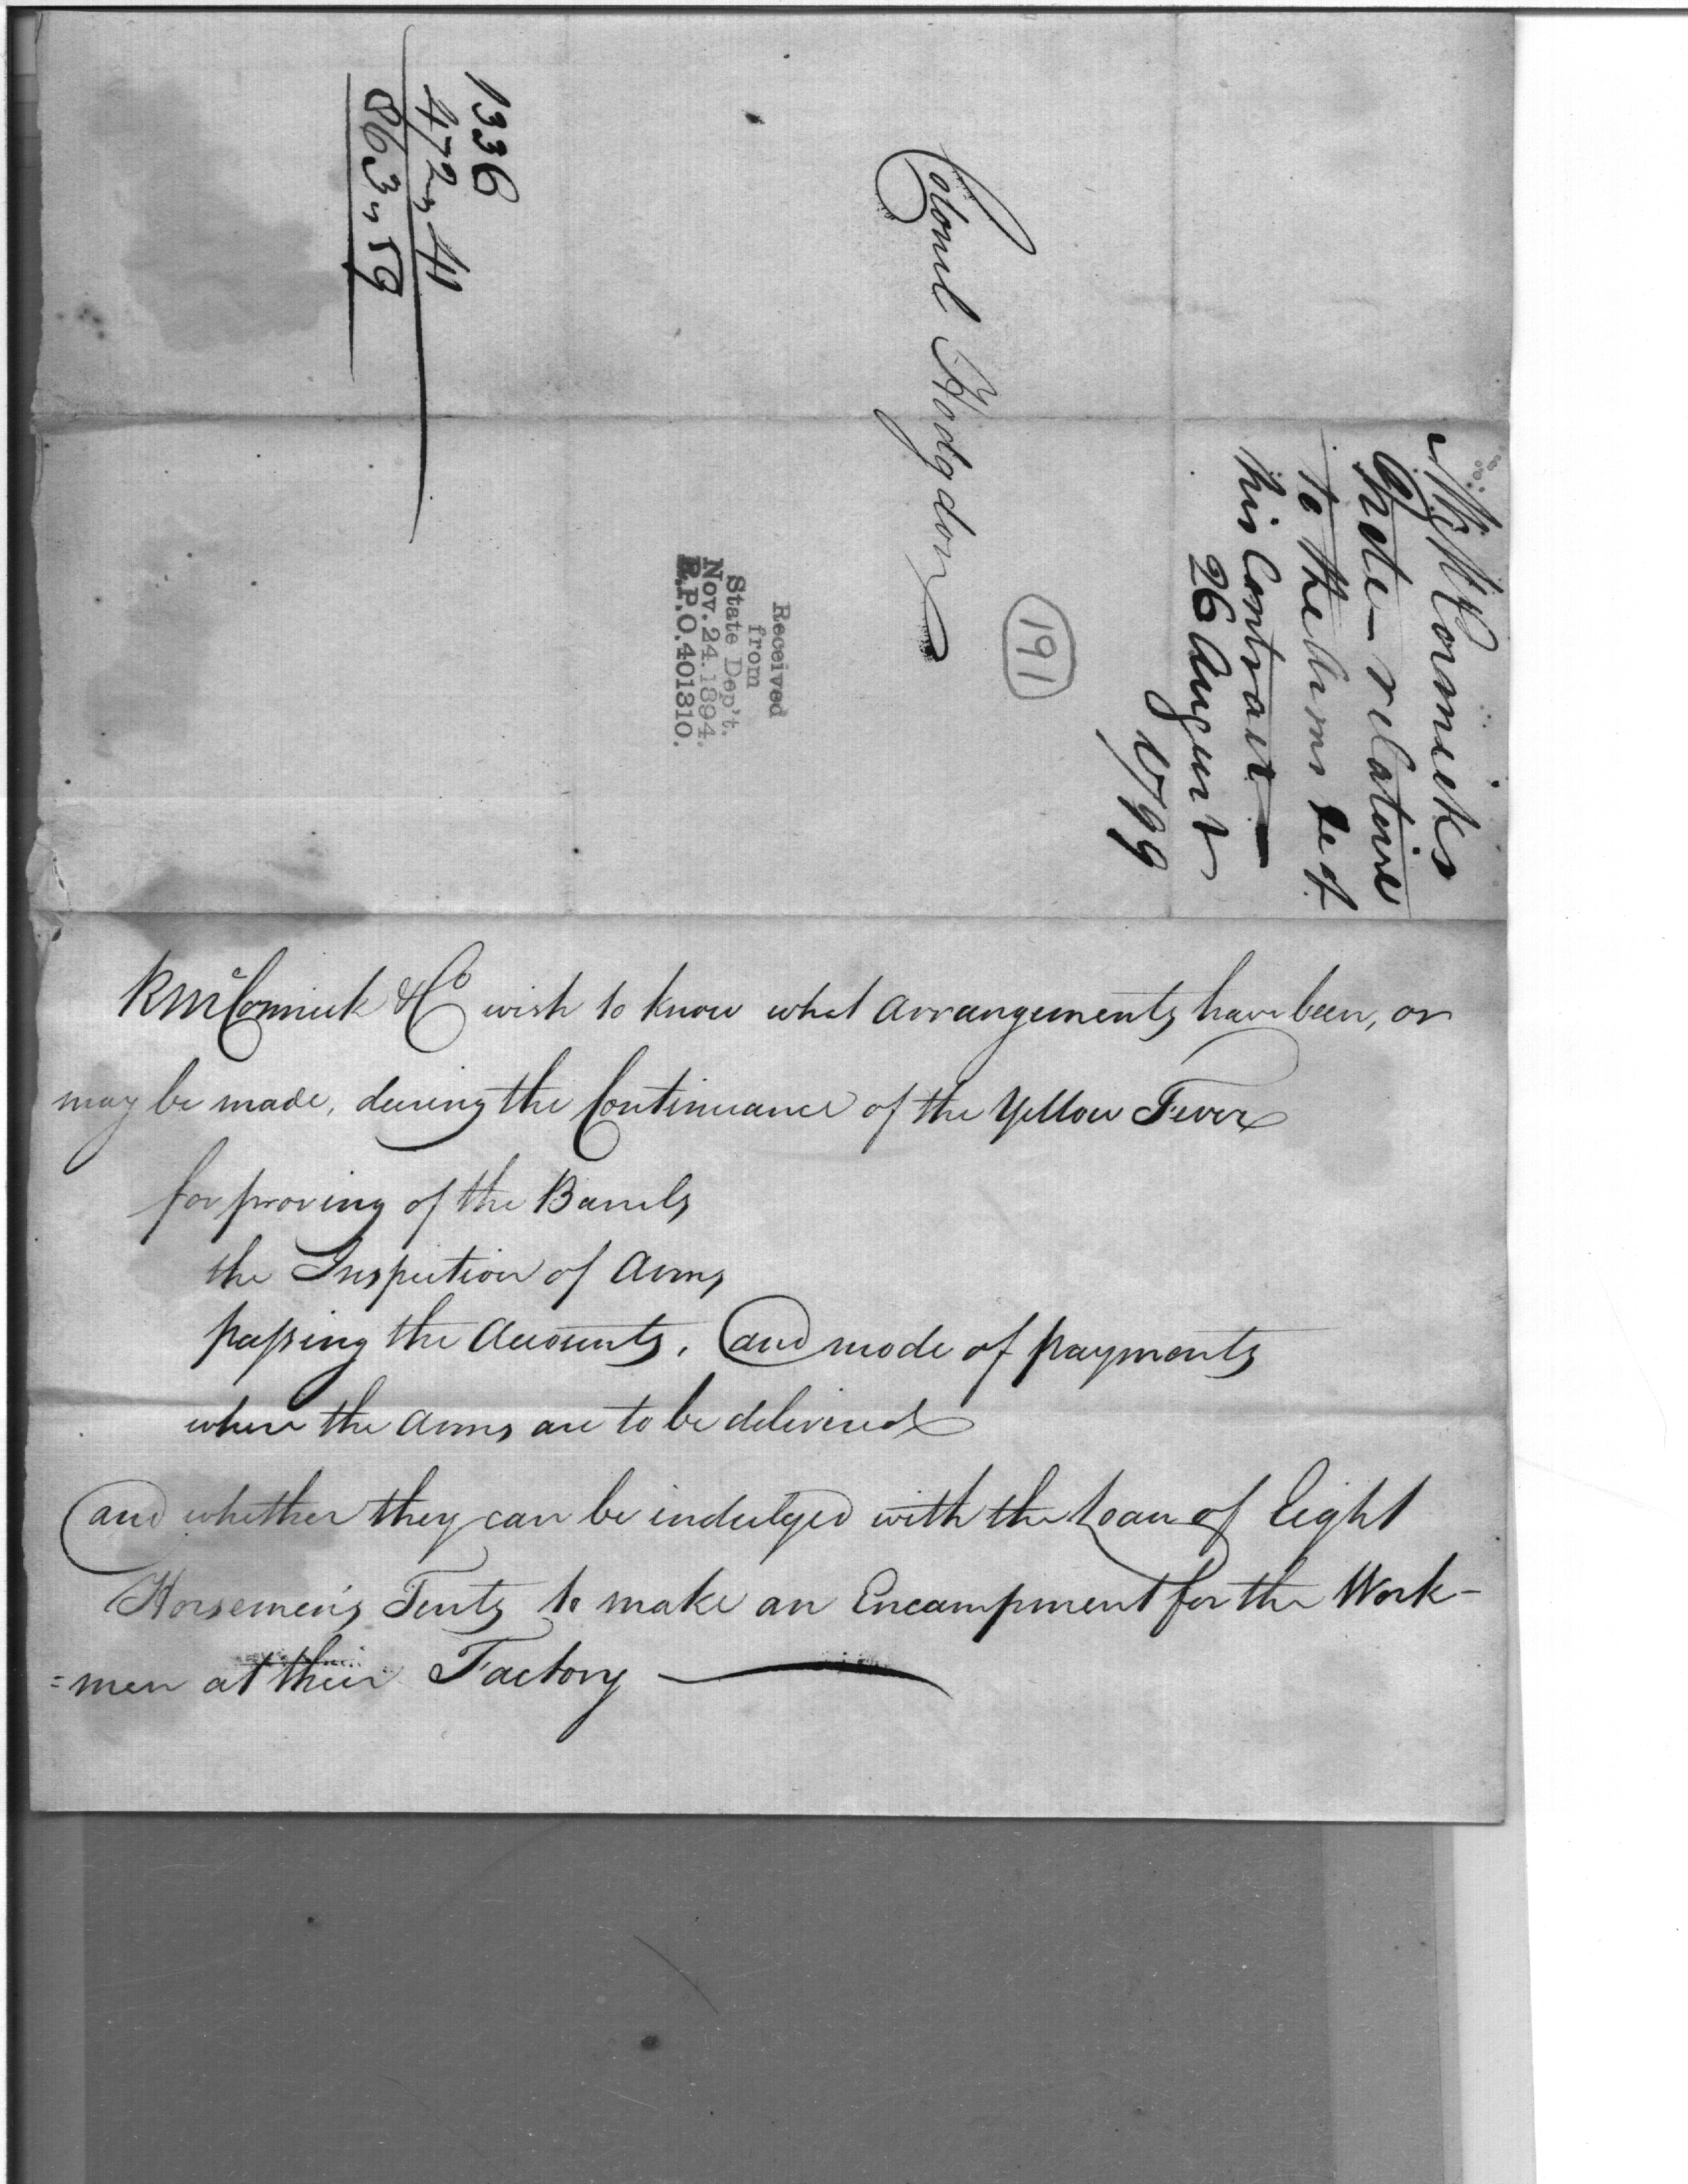 Mr McCormicks
Note — relative
to the Arms &c of
his Contract —
26 August
1799
191
Colonel Hodgdon
Received
from
State Dep't.
Nov. 24. 1894.
R.P.O. 401310.
1336
472,, 41
863,, 59
R McCormick & Co wish to know what arrangements have been, or
may be made, during the Continuance of the Yellow Fever
for proving of the Barrels
the Inspection of Arms
passing the Accounts, and mode of payments
where the Arms are to be delivered
and whether they can be indulged with the Loan of Eight
Horsemen's Tents to make an Encampment for the Work-
=men at their Factory —